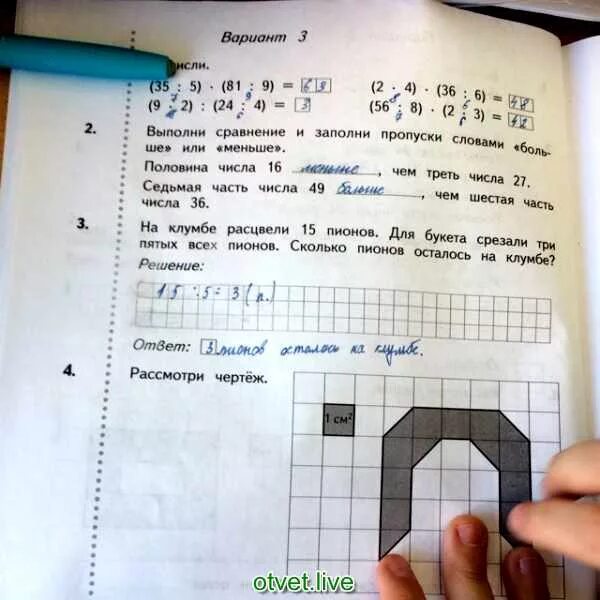 Вариант 3
исли.
(35 : 5) · (81 : 9) = 63 (2 · 4) · (36 : 6) = 48
7 9 8 6
(9 · 2) : (24 : 4) = 3 (56 : 8) · (2 · 3) = 42
18 6 7 6
2. Выполни сравнение и заполни пропуски словами «боль-
ше» или «меньше».
Половина числа 16 меньше, чем треть числа 27.
Седьмая часть числа 49 больше, чем шестая часть
числа 36.
3. На клумбе расцвели 15 пионов. Для букета срезали три
пятых всех пионов. Сколько пионов осталось на клумбе?
Решение:
15 : 5 = 3 (п.)
Ответ: 3 пионов осталось на клумбе.
4. Рассмотри чертёж.
1 см²
otvet.live